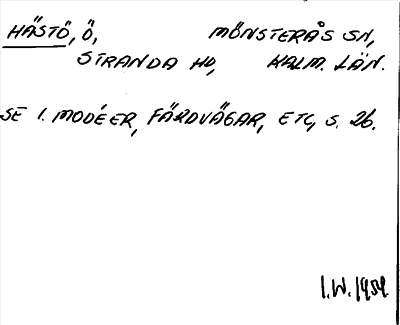 HÄSTÖ, Ö, MÖNSTERÅS SN,
STRANDA HD, KALM. LÄN.
SE I. MODÉER, FÄRDVÄGAR, ETC, S. 26.
I.W. 1959.